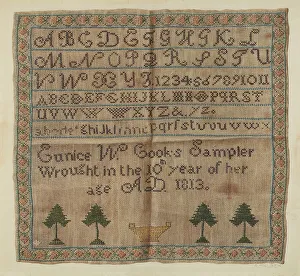 A B C D E F G H I K L
M N O P Q R S T U
V W X Y Z 1 2 3 4 5 6 7 8 9 10 11
A B C D E F G H I J K L M N O P Q R S T
U V W X Y Z & yz.
a b c d e f g h i j k l m n o p q r s t u v w x
Eunice W Cook's Sampler
Wrought in the 10th year of her
age A.D. 1813.